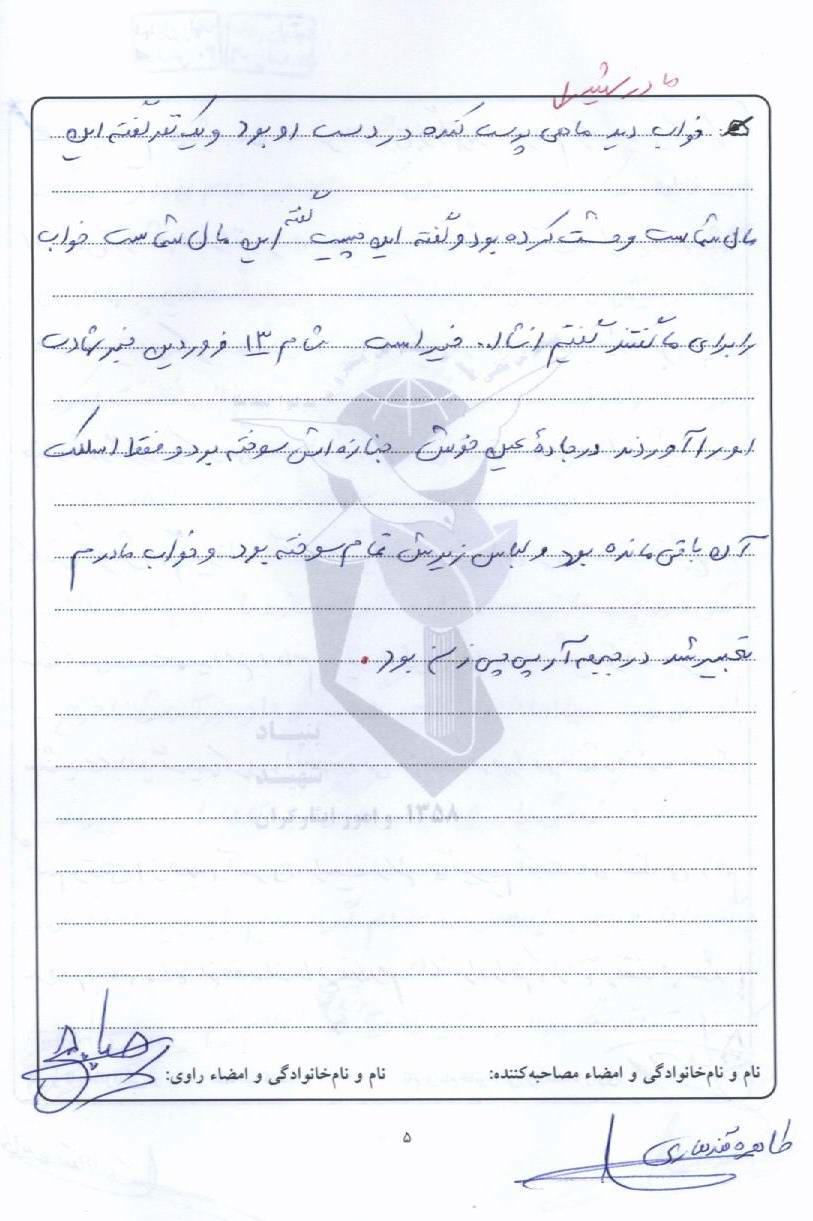 مادر شهید
خواب دید ماهی پوست کنده در دست او بود و یک نفر گفته این
مال شماست وحشت کرده بود و گفته این چیست گفته این مال شماست خواب
را برای ما گفتند گفتیم انشاا.. خیر است شام ۱۳ فروردین خبر شهادت
او را آوردند در جاده عین خوش جنازه اش سوخته بود و فقط اسکلت
آن باقی مانده بود و لباس زیرش تمام سوخته بود و خواب مادرم
تعبیر شد در جبهه آر پی جی زن بود.
بنیاد
شهید
و امور ایثارگران ۱۳۵۸
نام و نام‌خانوادگی و امضاء مصاحبه‌کننده: نام و نام‌خانوادگی و امضاء راوی:
۵
طاهره قندهاری